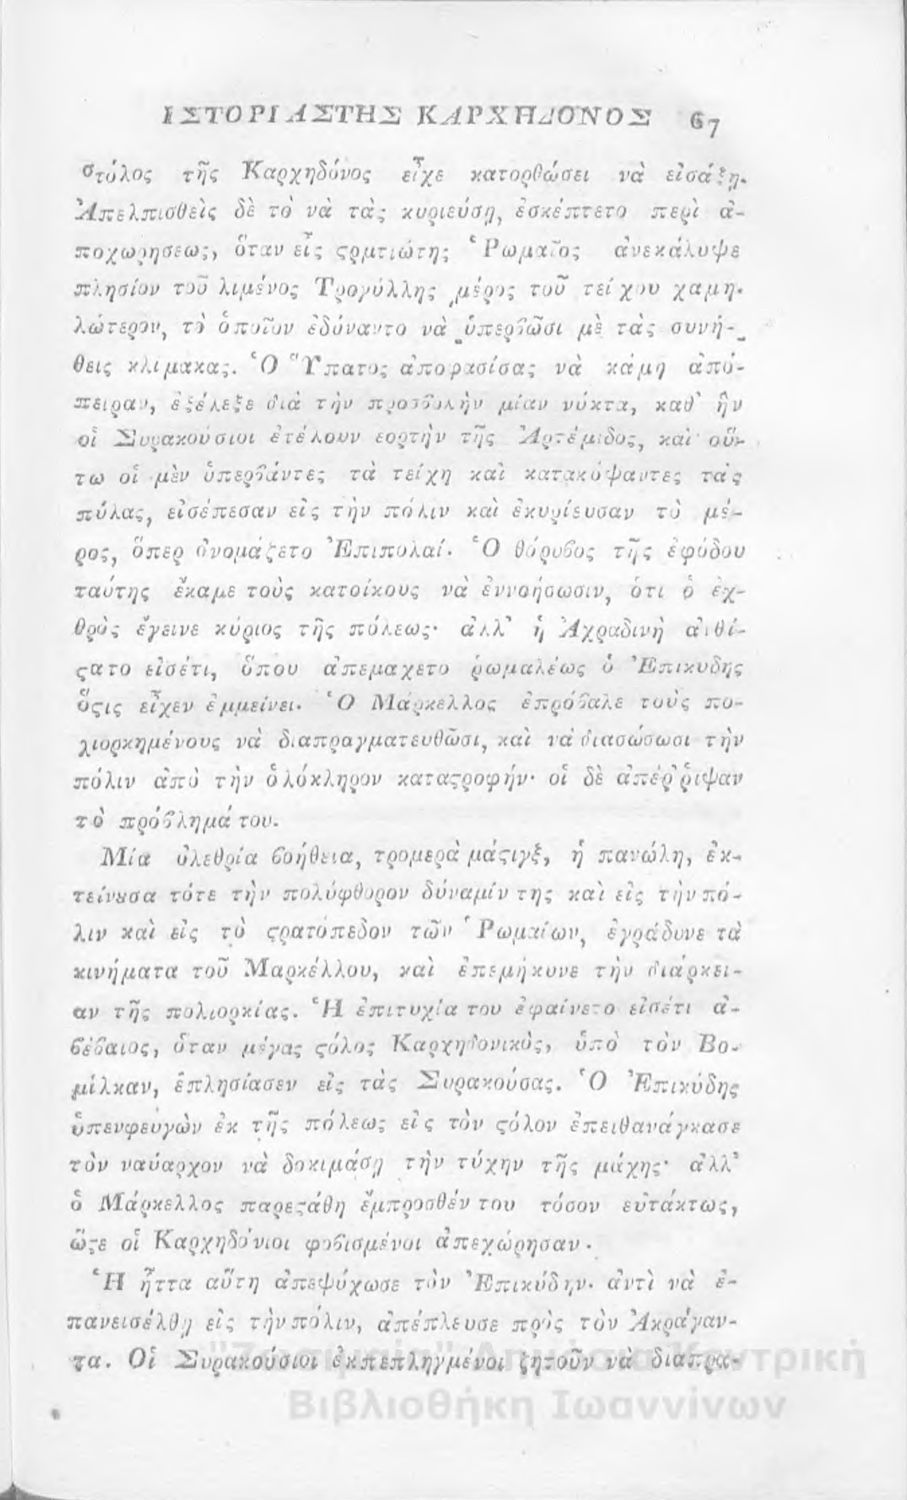 ΙΣΤΟΡΙΑ ΣΤΗΣ ΚΑΡΧΗΔΟΝΟΣ 67
στόλος τῆς Καρχηδόνος εἶχε κατορθώσει νὰ εἰσάξῃ.
Ἀπελπισθεὶς δὲ τὸ νὰ τὰς κυριεύσῃ, ἐσκέπτετο περὶ ἀ-
ποχωρήσεως, ὅταν εἷς ςρατιώτης Ῥωμαῖος ἀνεκάλυψε
πλησίον τοῦ λιμένος Τρογύλλης μέρος τοῦ τείχου χαμη-
λώτερον, τὸ ὁποῖον ἐδύναντο νὰ ὑπερβῶσι μὲ τὰς συνή-
θεις κλίμακας. Ὁ Ὕπατος ἀποφασίσας νὰ κάμῃ ἀπό-
πειραν, ἐξέλεξε διὰ τὴν προσβολὴν μίαν νύκτα, καθ' ἣν
οἱ Συρακούσιοι ἐτέλουν ἑορτὴν τῆς Ἀρτέμιδος, καὶ οὕ-
τω οἱ μὲν ὑπερβάντες τὰ τείχη καὶ κατακόψαντες τὰς
πύλας, εἰσέπεσαν εἰς τὴν πόλιν καὶ ἐκυρίευσαν τὸ μέ-
ρος, ὅπερ ὀνομάζετο Ἐπιπολαί. Ὁ θόρυβος τῆς ἐφόδου
ταύτης ἔκαμε τοὺς κατοίκους νὰ ἐννοήσωσιν, ὅτι ὁ ἐχ-
θρὸς ἔγεινε κύριος τῆς πόλεως· ἀλλ' ἡ Ἀχραδινὴ ἀνθί-
ςατο εἰσέτι, ὅπου ἀπεμάχετο ῥωμαλέως ὁ Ἐπικύδης
ὅςις εἶχεν ἐμμείνει. Ὁ Μάρκελλος ἐπρόβαλε τοὺς πο-
λιορκημένους νὰ διαπραγματευθῶσι, καὶ νὰ διασώσωσι τὴν
πόλιν ἀπὸ τὴν ὁλόκληρον καταςροφήν· οἱ δὲ ἀπέῤῥιψαν
τὸ πρόβλημά του.
Μία ὀλεθρία βοήθεια, τρομερὰ μάςιγξ, ἡ πανώλη, ἐκ-
τείνουσα τότε τὴν πολύφθορον δύναμίν της καὶ εἰς τὴν πό-
λιν καὶ εἰς τὸ ςρατόπεδον τῶν Ῥωμαίων, ἐγράδυνε τὰ
κινήματα τοῦ Μαρκέλλου, καὶ ἐπεμήκυνε τὴν διάρκει-
αν τῆς πολιορκίας. Ἡ ἐπιτυχία του ἐφαίνετο εἰσέτι ἀ-
βέβαιος, ὅταν μέγας ςόλος Καρχηδονικὸς, ὑπὸ τὸν Βο-
μίλκαν, ἐπλησίασεν εἰς τὰς Συρακούσας. Ὁ Ἐπικύδης
ὑπενφευγὼν ἐκ τῆς πόλεως εἰς τὸν ςόλον ἐπειθανάγκασε
τὸν ναύαρχον νὰ δοκιμάσῃ τὴν τύχην τῆς μάχης· ἀλλ'
ὁ Μάρκελλος παρεςάθη ἔμπροσθέν του τόσον εὐτάκτως,
ὥςε οἱ Καρχηδόνιοι φοβισμένοι ἀπεχώρησαν.
Ἡ ἧττα αὕτη ἀπεψύχωσε τὸν Ἐπικύδην. ἀντὶ νὰ ἐ-
πανεισέλθῃ εἰς τὴν πόλιν, ἀπέπλευσε πρὸς τὸν Ἀκράγαν-
τα. Οἱ Συρακούσιοι ἐκπεπληγμένοι ζητοῦν νὰ διαπρα-
Βιβλιοθήκη Ιωαννίνων